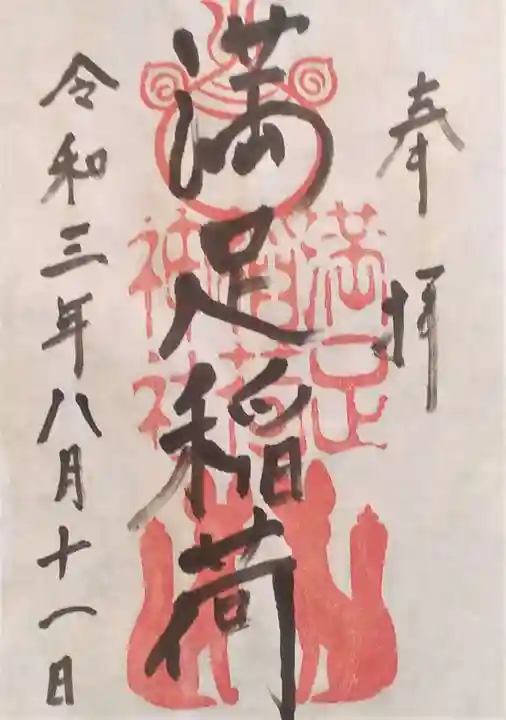 奉拝
満足稲荷
満足
稲荷
神社
令和三年八月十一日